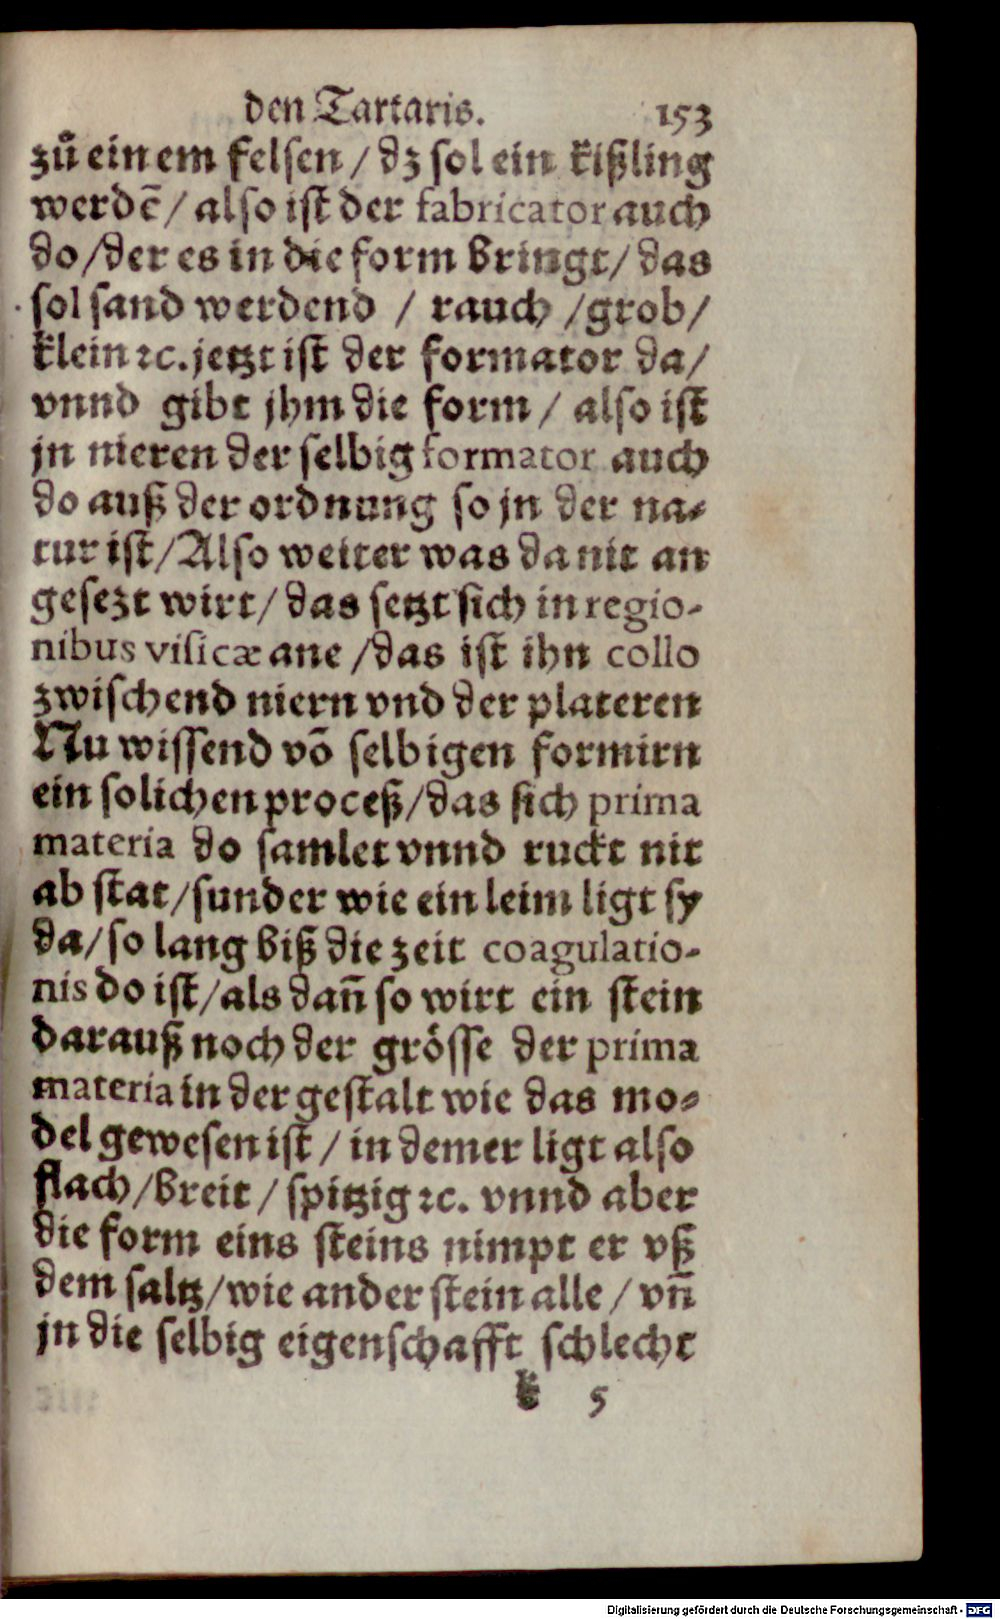 den Tartaris. 153
zů einem felsen / dz sol ein kißling
werdē / also ist der fabricator auch
do / der es in die form bringt / das
sol sand werdend / rauch / grob /
klein ꝛc. jetzt ist der formator da /
vnnd gibt jhm die form / also ist
jn nieren der selbig formator auch
do auß der ordnung so jn der na-
tur ist / Also weiter was da nit an
gesezt wirt / das setzt sich in regio-
nibus visicæ ane / das ist ihn collo
zwischend niern vnd der plateren
Nu wissend vō selbigen formirn
ein solichen proceß / das sich prima
materia do samlet vnnd ruckt nit
ab stat / sunder wie ein leim ligt sy
da / so lang biß die zeit coagulatio-
nis do ist / als dañ so wirt ein stein
darauß noch der grösse der prima
materia in der gestalt wie das mo-
del gewesen ist / in dem er ligt also
flach / breit / spitzig ꝛc. vnnd aber
die form eins steins nimpt er vß
dem saltz / wie ander stein alle / vñ
jn die selbig eigenschafft schlecht
k 5
Digitalisierung gefördert durch die Deutsche Forschungsgemeinschaft - DFG